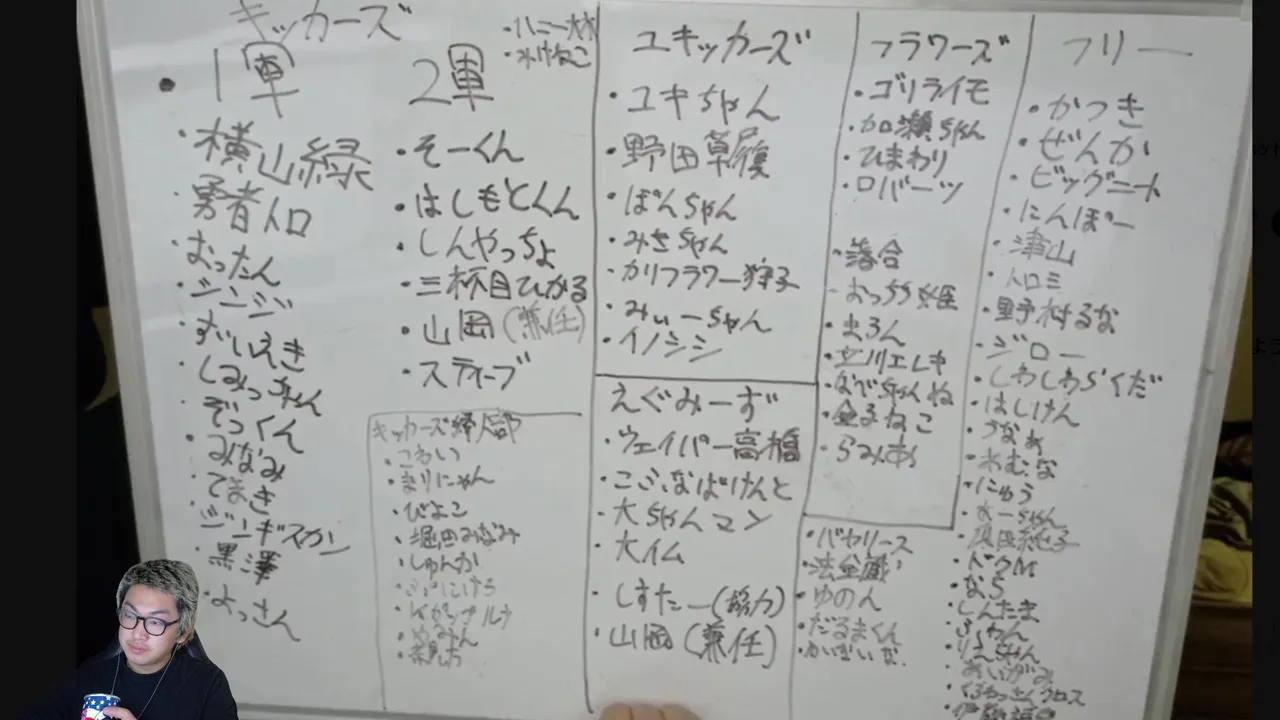 キッカーズ
1軍
・横山緑
・勇者トロ
・おったん
・ジンジン
・ずいえき
・しみっちゃん
・ぞっくん
・みなみ
・てまき
・ジンギスカン
・黒澤
・よっさん
2軍
・そーくん
・はしもとくん
・しんやっちょ
・三杯目ひかる
・山岡(兼任)
・スティーブ
キッカーズ婦人部
・こわい
・まりにゃん
・ぴよこ
・堀田みなみ
・しゅんか
ユキッカーズ
・ユキちゃん
・野田草履
・ぽんちゃん
・みさちゃん
・カリフラワー狩子
・みぃーちゃん
・イノシシ
えぐみーず
・ウェイパー高橋
・こふなばけんと
・大ちゃんマン
・大イム
・しすたー(協力)
・山岡(兼任)
フラワーズ
・ゴリライモ
・加瀬ちゃん
・ひまわり
・ロバーツ
・落合
・おっちゃ姫
・まろん
・立川エレキ
・なでちゃんね
・金子ねこ
・らみあ
・バヤリース
・法金蔵
・ゆのん
・だるまくん
フリー
・かつき
・ぜんか
・ビッグニート
・にんぽー
・津山
・トロミ
・野村るな
・ジロー
・しわしわらくだ
・はしけん
・うなぁ
・ねむいな
・にゅう
・ドクM
・なら
・しんたま
・りえちゃん
・あいがみ